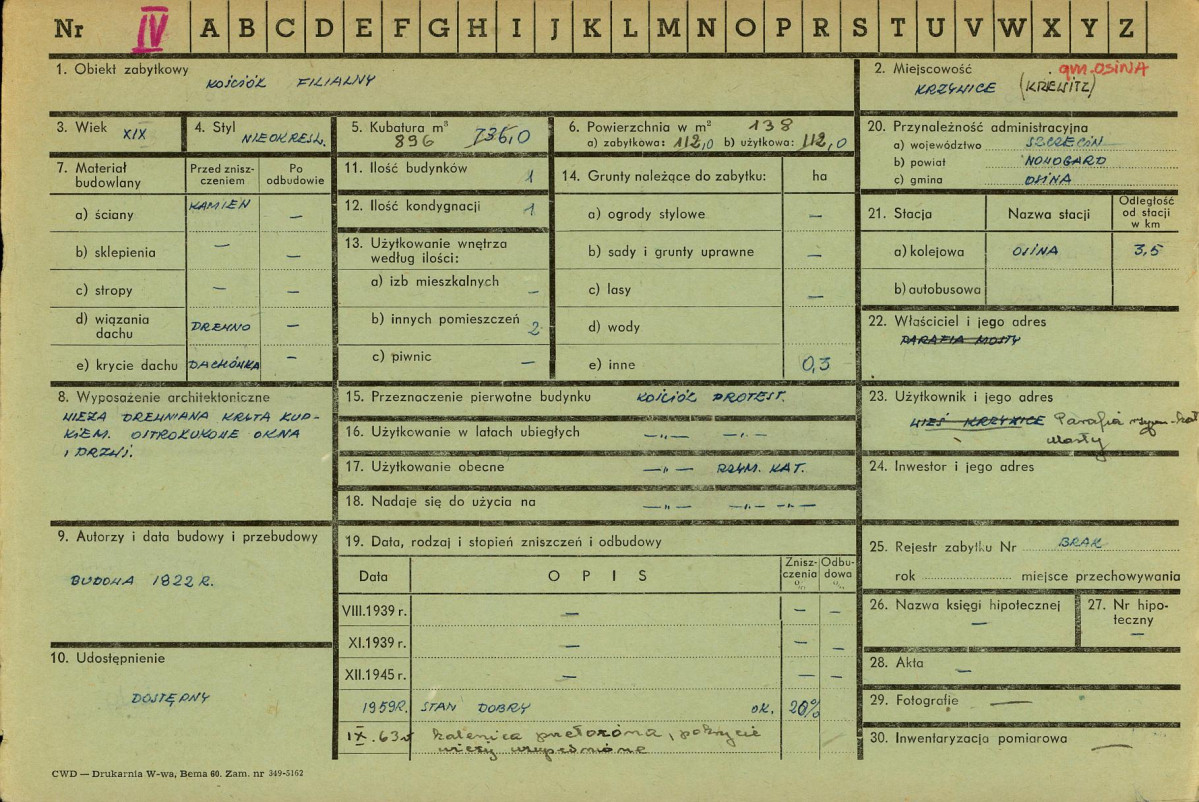 Nr IV A B C D E F G H I J K L M N O P R S T U V W X Y Z
1. Obiekt zabytkowy KOŚCIÓŁ FILIALNY
2. Miejscowość gm. OSINA
KRZYWICE (KRIEWITZ)
3. Wiek XIX
4. Styl NIEOKREŚL.
5. Kubatura m³ 735,0
896
6. Powierzchnia w m² 138
a) zabytkowa: 112,0 b) użytkowa: 112,0
7. Materiał budowlany
Przed zniszczeniem
Po odbudowie
a) ściany KAMIEŃ —
b) sklepienia — —
c) stropy — —
d) wiązania dachu DREWNO —
e) krycie dachu DACHÓWKA —
8. Wyposażenie architektoniczne
WIEŻA DREWNIANA KRYTA KUP-
KIEM. OSTROŁUKOWE OKNA
I DRZWI.
9. Autorzy i data budowy i przebudowy
BUDOWA 1822 R.
10. Udostępnienie
DOSTĘPNY
11. Ilość budynków 1
12. Ilość kondygnacji 1
13. Użytkowanie wnętrza
według ilości:
a) izb mieszkalnych —
b) innych pomieszczeń 2
c) piwnic —
14. Grunty należące do zabytku: ha
a) ogrody stylowe —
b) sady i grunty uprawne —
c) lasy —
d) wody
e) inne 0,3
15. Przeznaczenie pierwotne budynku KOŚCIÓŁ PROTEST.
16. Użytkowanie w latach ubiegłych —„— —„—
17. Użytkowanie obecne —„— RZYM. KAT.
18. Nadaje się do użycia na —„— —„— —„—
19. Data, rodzaj i stopień zniszczeń i odbudowy
Data OPIS Zniszczenia % Odbudowa %
VIII.1939 r. — — —
XI.1939 r. — — —
XII.1945 r. — — —
1959R. STAN DOBRY OK. 20%
IX.63r kalenica przełożona, pokrycie
wieży uzupełnione
20. Przynależność administracyjna
a) województwo SZCZECIN
b) powiat NOWOGARD
c) gmina OSINA
21. Stacja Nazwa stacji Odległość od stacji w km
a) kolejowa OSINA 3,5
b) autobusowa
22. Właściciel i jego adres
PARAFIA MOSTY
23. Użytkownik i jego adres
WIEŚ KRZYWICE Parafia rzym-kat
Mosty
24. Inwestor i jego adres
25. Rejestr zabytku Nr BRAK
rok miejsce przechowywania
26. Nazwa księgi hipotecznej
—
27. Nr hipoteczny
—
28. Akta —
29. Fotografie —
30. Inwentaryzacja pomiarowa —
CWD — Drukarnia W-wa, Bema 60. Zam. nr 349-5162